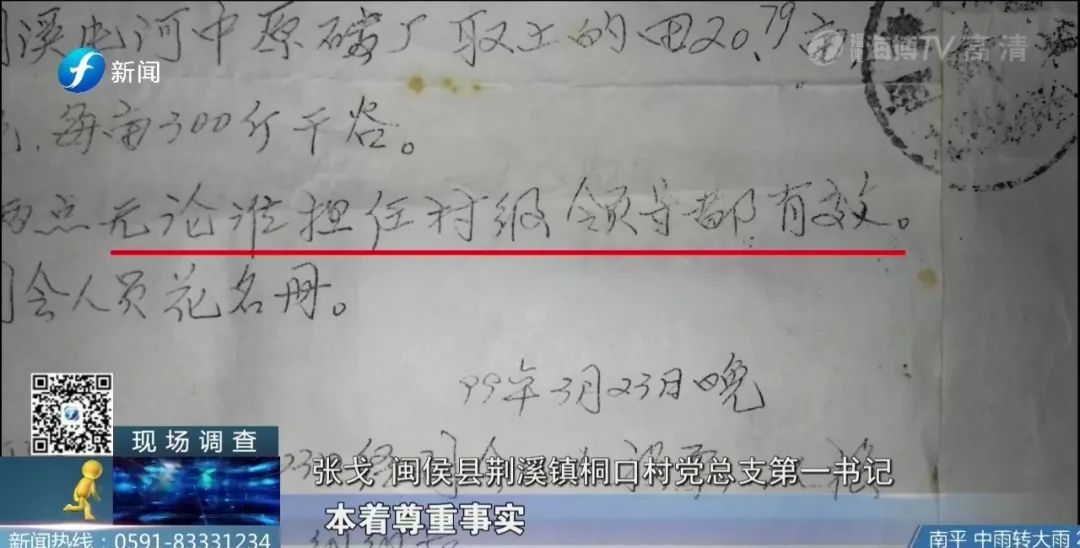 溪电河中原破了取土的田20.79亩
新闻
海博TV高清
每亩300斤干谷。
两点无论谁担任村级领导都有效。
会人员花名册。
99年3月23日晚
现场调查
张戈 闽侯县荆溪镇桐口村党总支第一书记
本着尊重事实
新闻热线：0591-83331234
南平 中雨转大雨